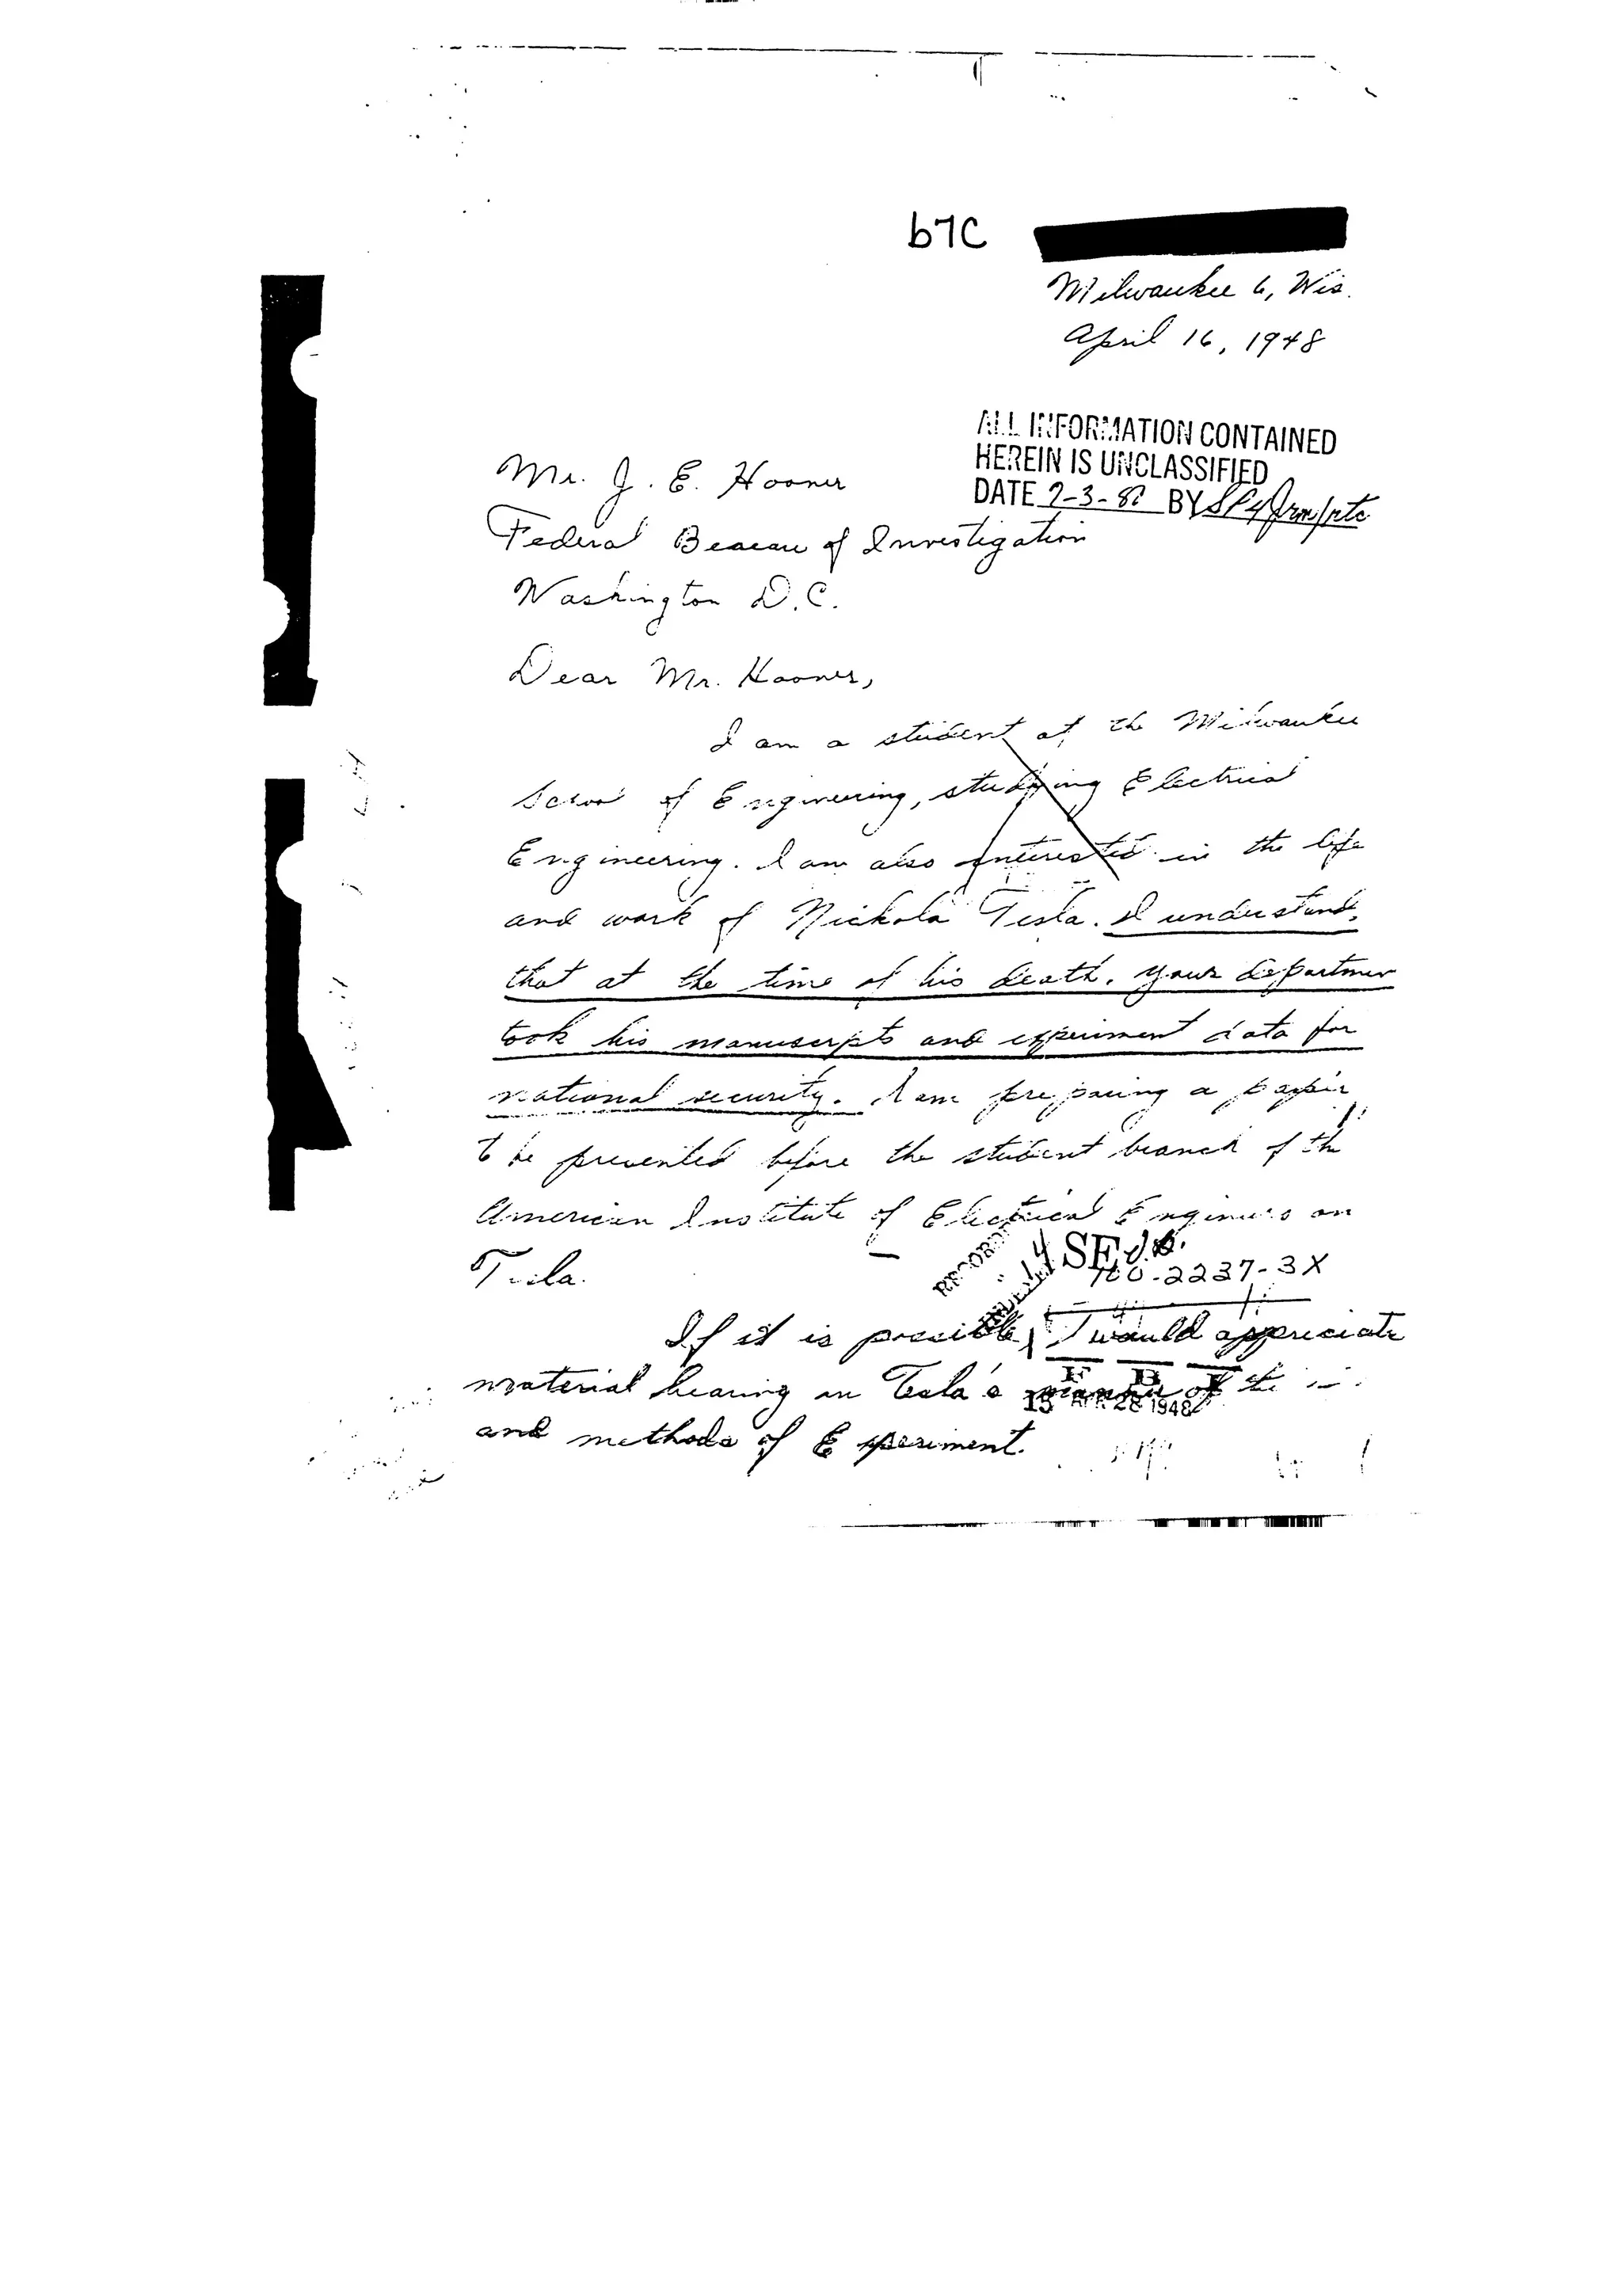 b7C
Milwaukee 6, Wis.
April 16, 1948
ALL INFORMATION CONTAINED
HEREIN IS UNCLASSIFIED
DATE BY
Mr. J. E. Hoover
Federal Bureau of Investigation
Washington D.C.
Dear Mr. Hoover,
I am a student at the Milwaukee
School of Engineering, studying Electrical
Engineering. I am also interested in the life
and work of Nickola Tesla. I understand,
that at the time of his death, your departmen
took his manuscripts and experiment data for
national security. I am preparing a paper
to be presented before the student branch of the
American Institute of Electrical Engineers on
Tesla.
100-2237-3X
If it is possible, I would appreciate
material bearing on Tesla's of
F B I
28 1948
and methods of Experiment.